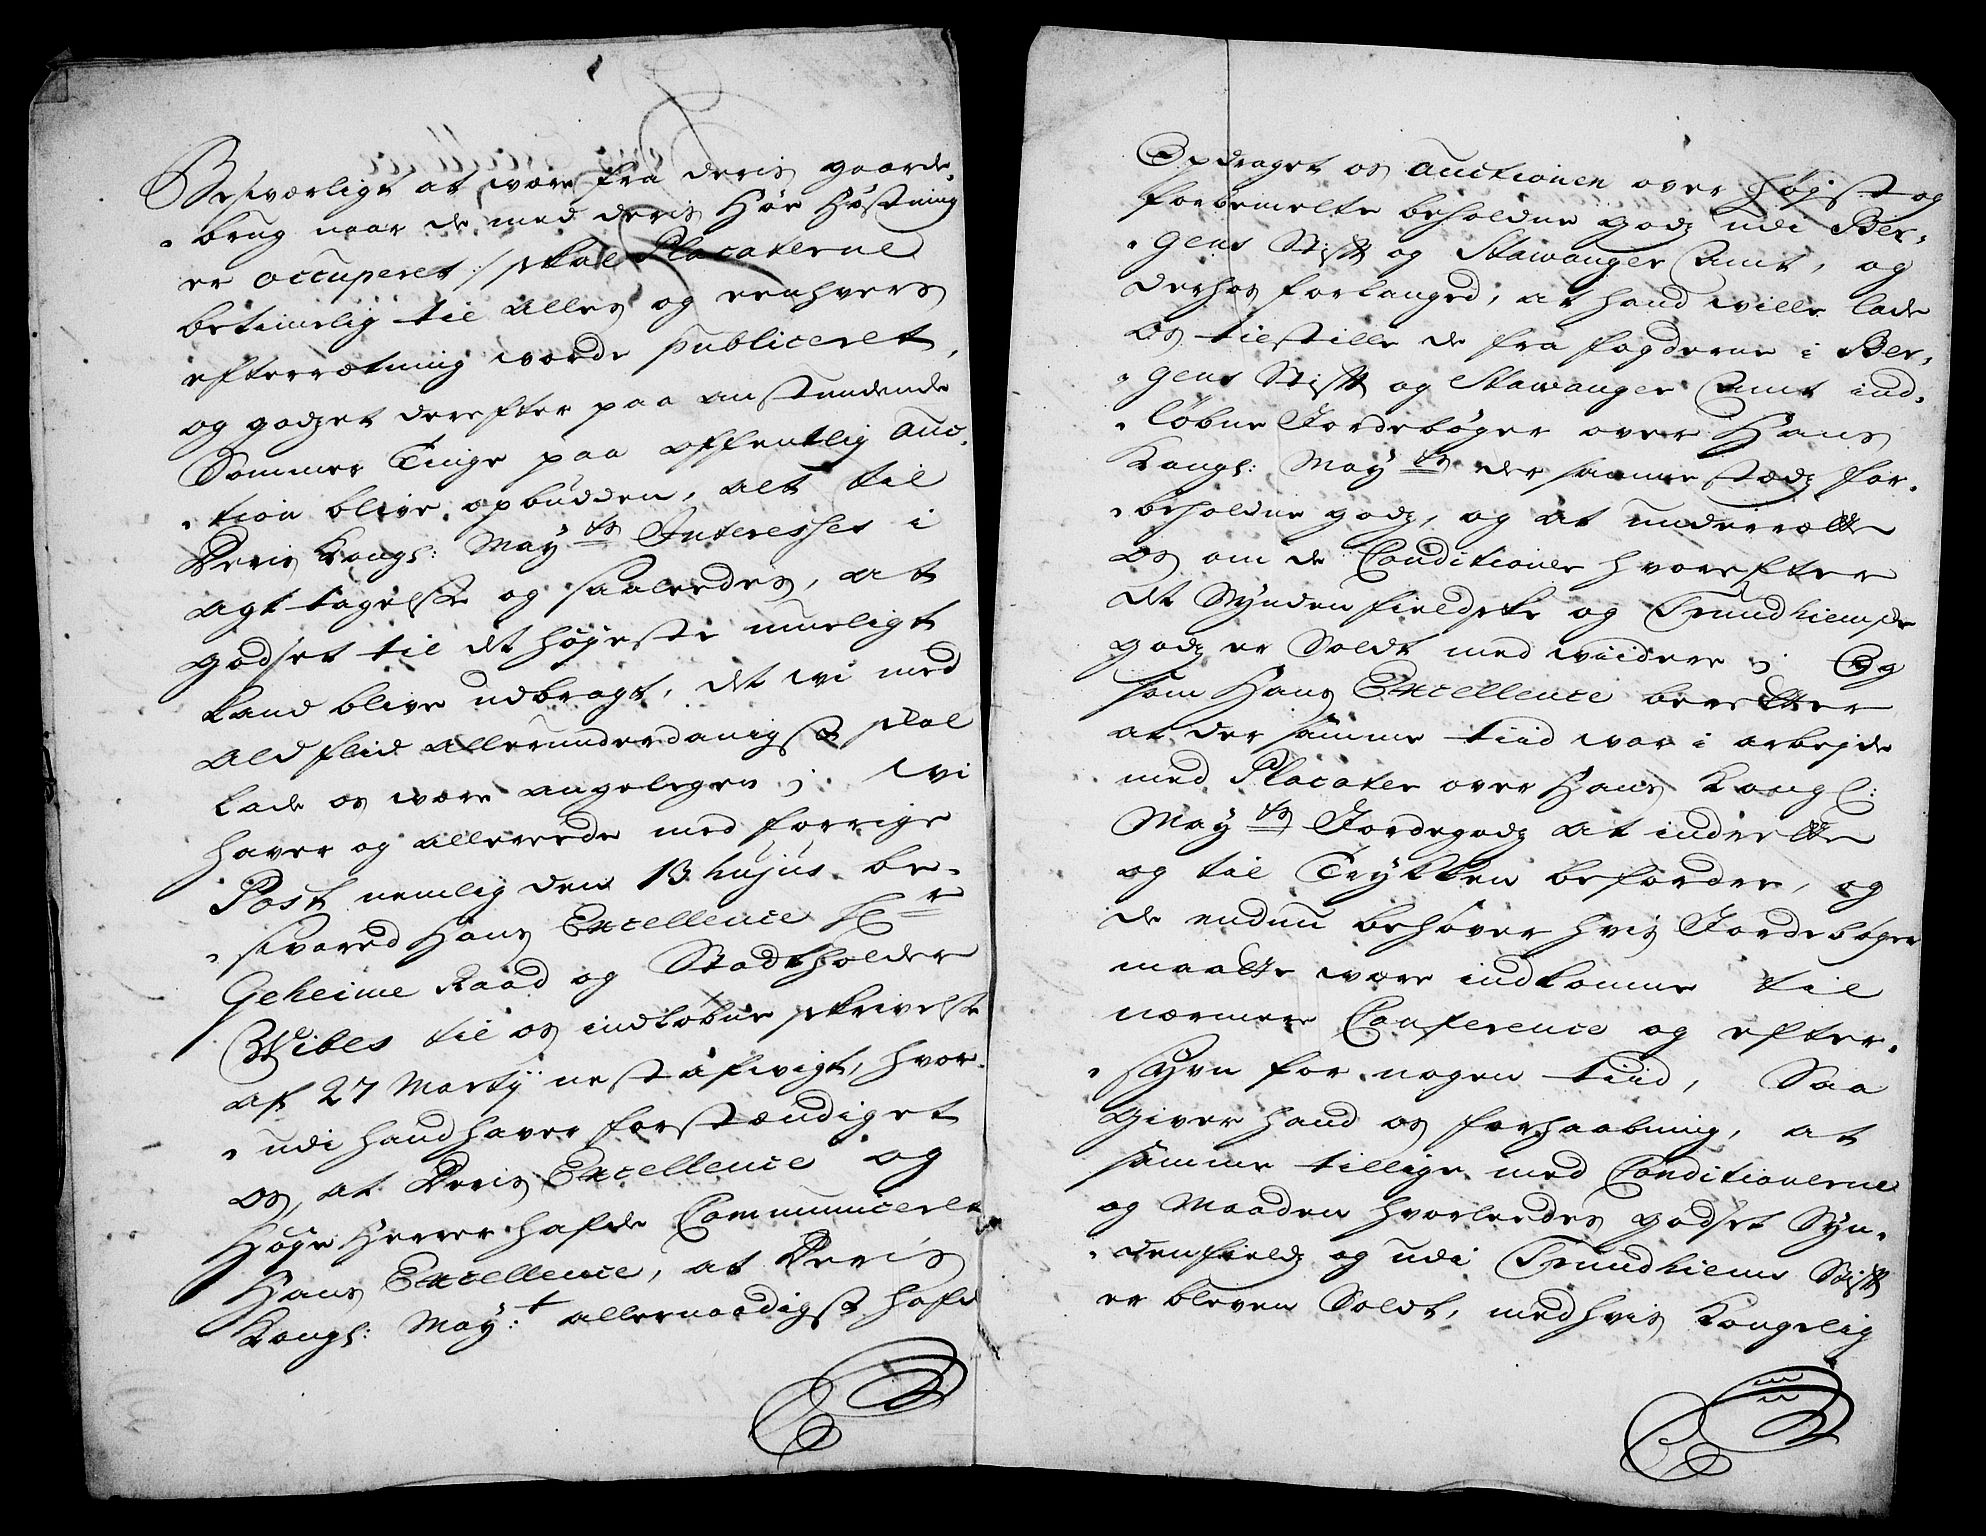 Besværligt at være fra deris gaarde,
brug naar de med deris Høe Høstning
er occuperet :/ skal Placaterne
betimelig til alles og eenhvers
efterrætning worde publiceret,
og godzet derefter paa anstundende
Sommer Tinge paa offentlig Auc,
tion blive opbudden, alt til
Deris Kongl: May:ts Interesses i
agt tagelse og saaleedes, at
godset til det høyeste mueligt
kand blive udbragt, det wi med
ald fliid allerunderdanigst skal
lade os være angelegen; wi
haver og allereede med forrige
Post nemlig den 13 hujus be,
svared Hans Excellence Hr
Geheime Raad og Stadtholder
Wibes til os indløbne skrivelse
af 27 Marty nest afvigt, hvor,
udi hand haver forstændiget
os, at Deris Excellence og
Høye Herrer hafde Communiceret
Hans Excellence, at Deris
Kongl: May:t allernaadigst hafde
Opdraget os Auctionen over høyst og
forbemelte beholdne godz udi Ber,
gens Stift og Stawanger Amt, og
derhos forlanged, at hand wille lade
os tilstille de fra fogderne i Ber,
gens Stift og Stawanger Amt ind,
løbne Jordebøger over Hans
Kongl: May:ts der samme stædz for,
beholdne godz, og at underrætte
os om de Conditioner hvorefter
det Synden fieldske og Trundhiemske
godz er Soldt med wiidere; Og
som Hans Excellence beretter
at der samme tiid war i arbejde
med Placater over Hans Kongl:
May:ts Jordegodz at indrette
og til Trykken befordre, og
de endnu behøver hvis Jordebøger
maatte være indkomne til
nærmere Conference og efter,
syn for nogen tiid, Saa
giver hand os forhaabning, at
samme tillige med Conditionerne
og Maaden hvorleedes godset Syn,
denfieldz og udi Trundhiems Stift
er bleven Soldt, med hvis Kongelig